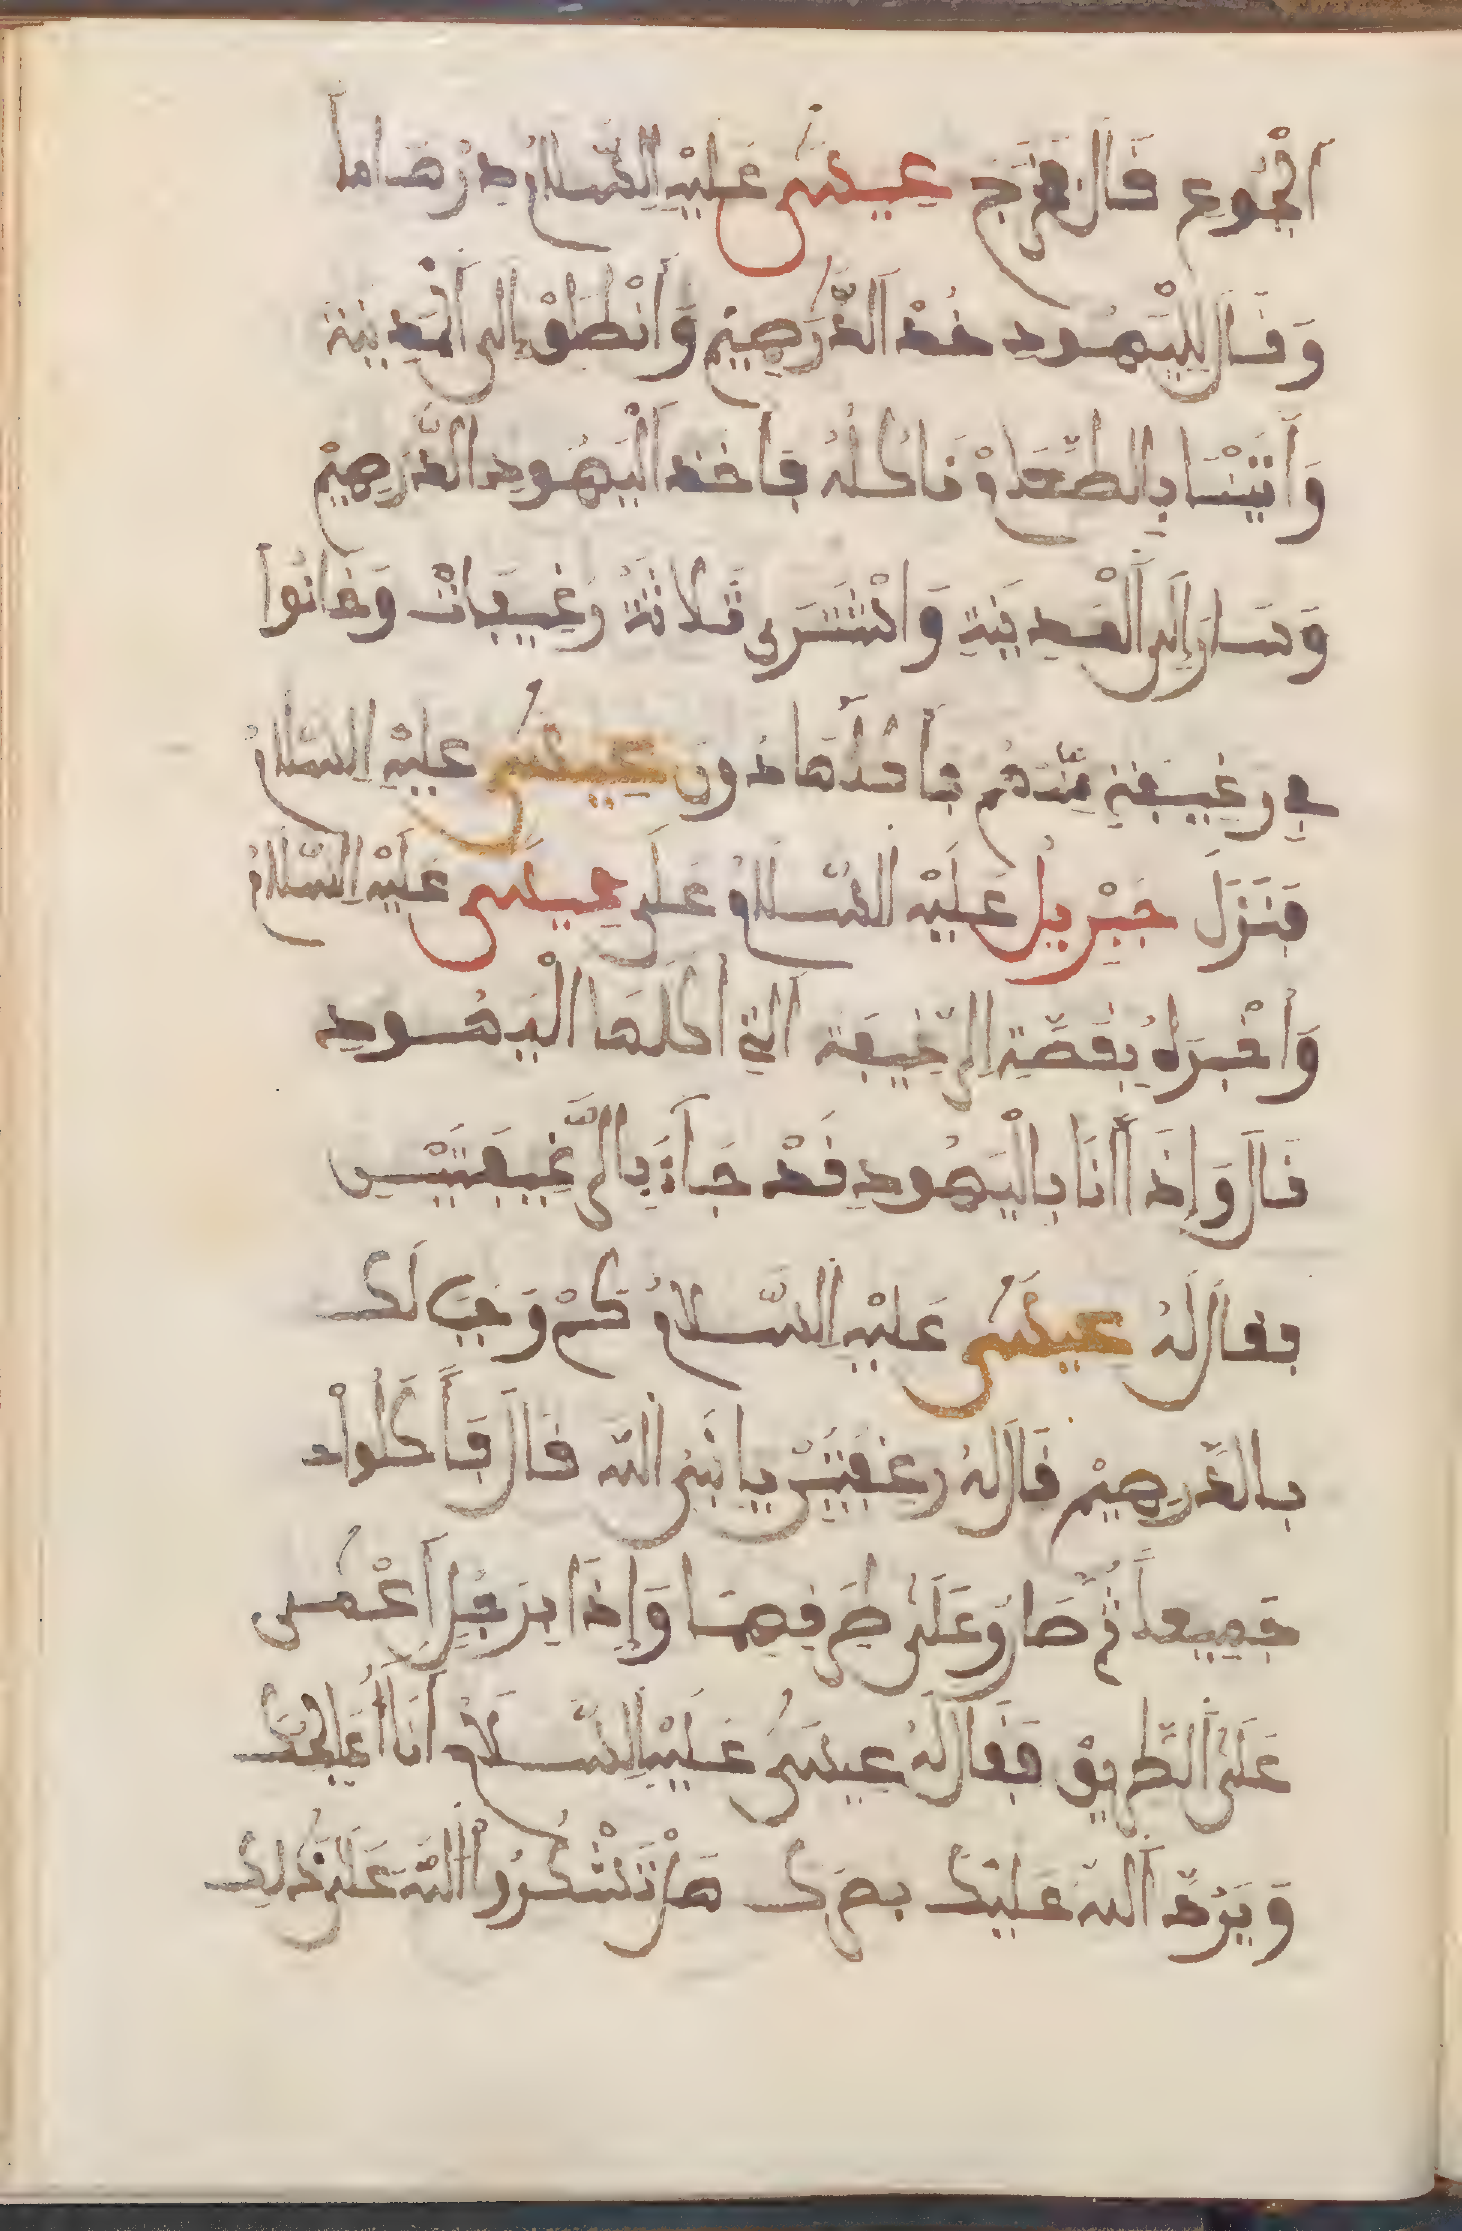 الْجُوعِ قَالَ فَخَرَجَ عِيسَى عَلَيْهِ السَّلَامُ دِرْهَاماً
وَقَالَ لِلْيَهُودِ خُذْ الدَّرَهِيمِ وَأَنْطَلِقْ إِلَى الْمَدِينَة
وَأَتِيْنَا بِالطَّعَامْ نَاكُلُهُ فَأَخَذَ الْيَهُودِ الدَّرَهِيمْ
وَسَارَ إِلَى الْمَدِينَةِ وَاشْتَرَى ثَلَاثَةُ رَغِيفَاتْ وَخَانُوا
فِي رَغِيفَةٍ مِّنْهُمْ فَأَكَلَهَا دُونَ عِيسَى عَلَيْهِ السَّلَامُ
فَنَزَلَ جِبْرِيلُ عَلَيْهِ السَّلَامُ عَلَى عِيسَى عَلَيْهِ السَّلَامُ
وَأَخْبَرَهُ بِقِصَّةِ الرَّغِيفَة الَّتِي أَكَلَهَا الْيَهُودِ
قَالَ وَإِذَا أَنَا بِالْيَهُودِ قَدْ جَآءَ بِالرَّغِيفَتَيْنِ
فَقَالَ لَهُ عِيسَى عَلَيْهِ السَّلَامُ كَمْ وَجَبَ لَكَ
بِالدَّرَهِيمْ قَالَ لَهُ رَغِفَتَيْنِ يَا نَبِيَّ اللَّهِ قَالَ فَأَكَلُواْ
جَمِيعاً ثُمَّ صَارَ عَلَى طَرِيقِهِمَا وَإِذَا بِرَجُلٍ أَعْمَى
عَلَى الطَّرِيقْ فَقَالَ لَهُ عِيسَى عَلَيْهِ السَّلَامْ أَنَا أُعَالِجُكَ
وَيَرُدُّ اللَّهُ عَلَيْكَ بَصَرَكَ هَلْ تَشْكُرُ اللَّهَ عَلَى ذَلِكَ